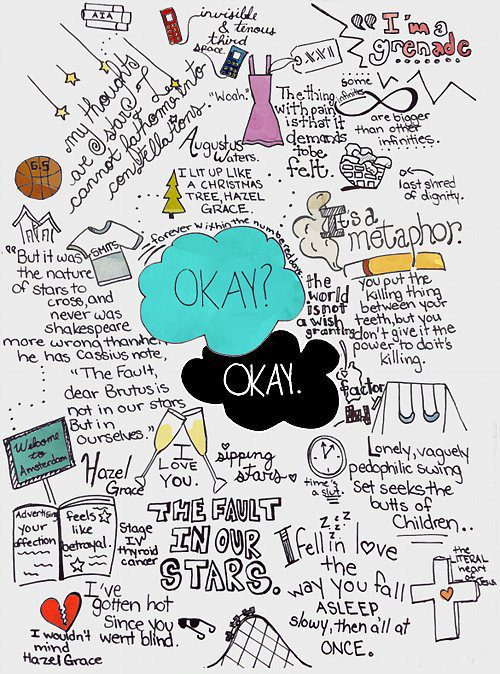 AIA
invisible
& tenous
third
space
"I'm a
grenade
my thoughts
are stars I
cannot fathom into
constellations.
"Woah."
XXVII
some
infinities
are bigger
than other
infinities.
The thing
with pain
is that it
demands
to be
felt.
6.5
Augustus
Waters.
I LIT UP LIKE
A CHRISTMAS
TREE, HAZEL
GRACE.
last shred
of dignity.
SMITS
forever within the numbered days.
It's a
metaphor.
"But it was
the nature
of stars to
cross, and
never was
shakespeare
more wrong than when
he has Cassius note,
"The Fault,
dear Brutus is
not in our stars
But in
ourselves."
OKAY?
OKAY.
the
world
is not
a wish
granting
factory
you put the
killing thing
between your
teeth, but you
don't give it the
power to do its
killing.
Welcome
to
Amsterdam
Hazel
Grace
I
LOVE
YOU.
sipping
stars
time's
a slut.
Lonely, vaguely
pedophilic swing
set seeks the
butts of
Children..
Advertising
your
affection
feels
like
betrayal.
Stage
IV
thyroid
cancer
THE FAULT
IN OUR
STARS.
zzzz
I fell in love
the
way you fall
ASLEEP
slowy, then all at
ONCE.
the
LITERAL
heart
of
Jesus
I wouldn't
mind
Hazel Grace
I've
gotten hot
Since you
went blind.